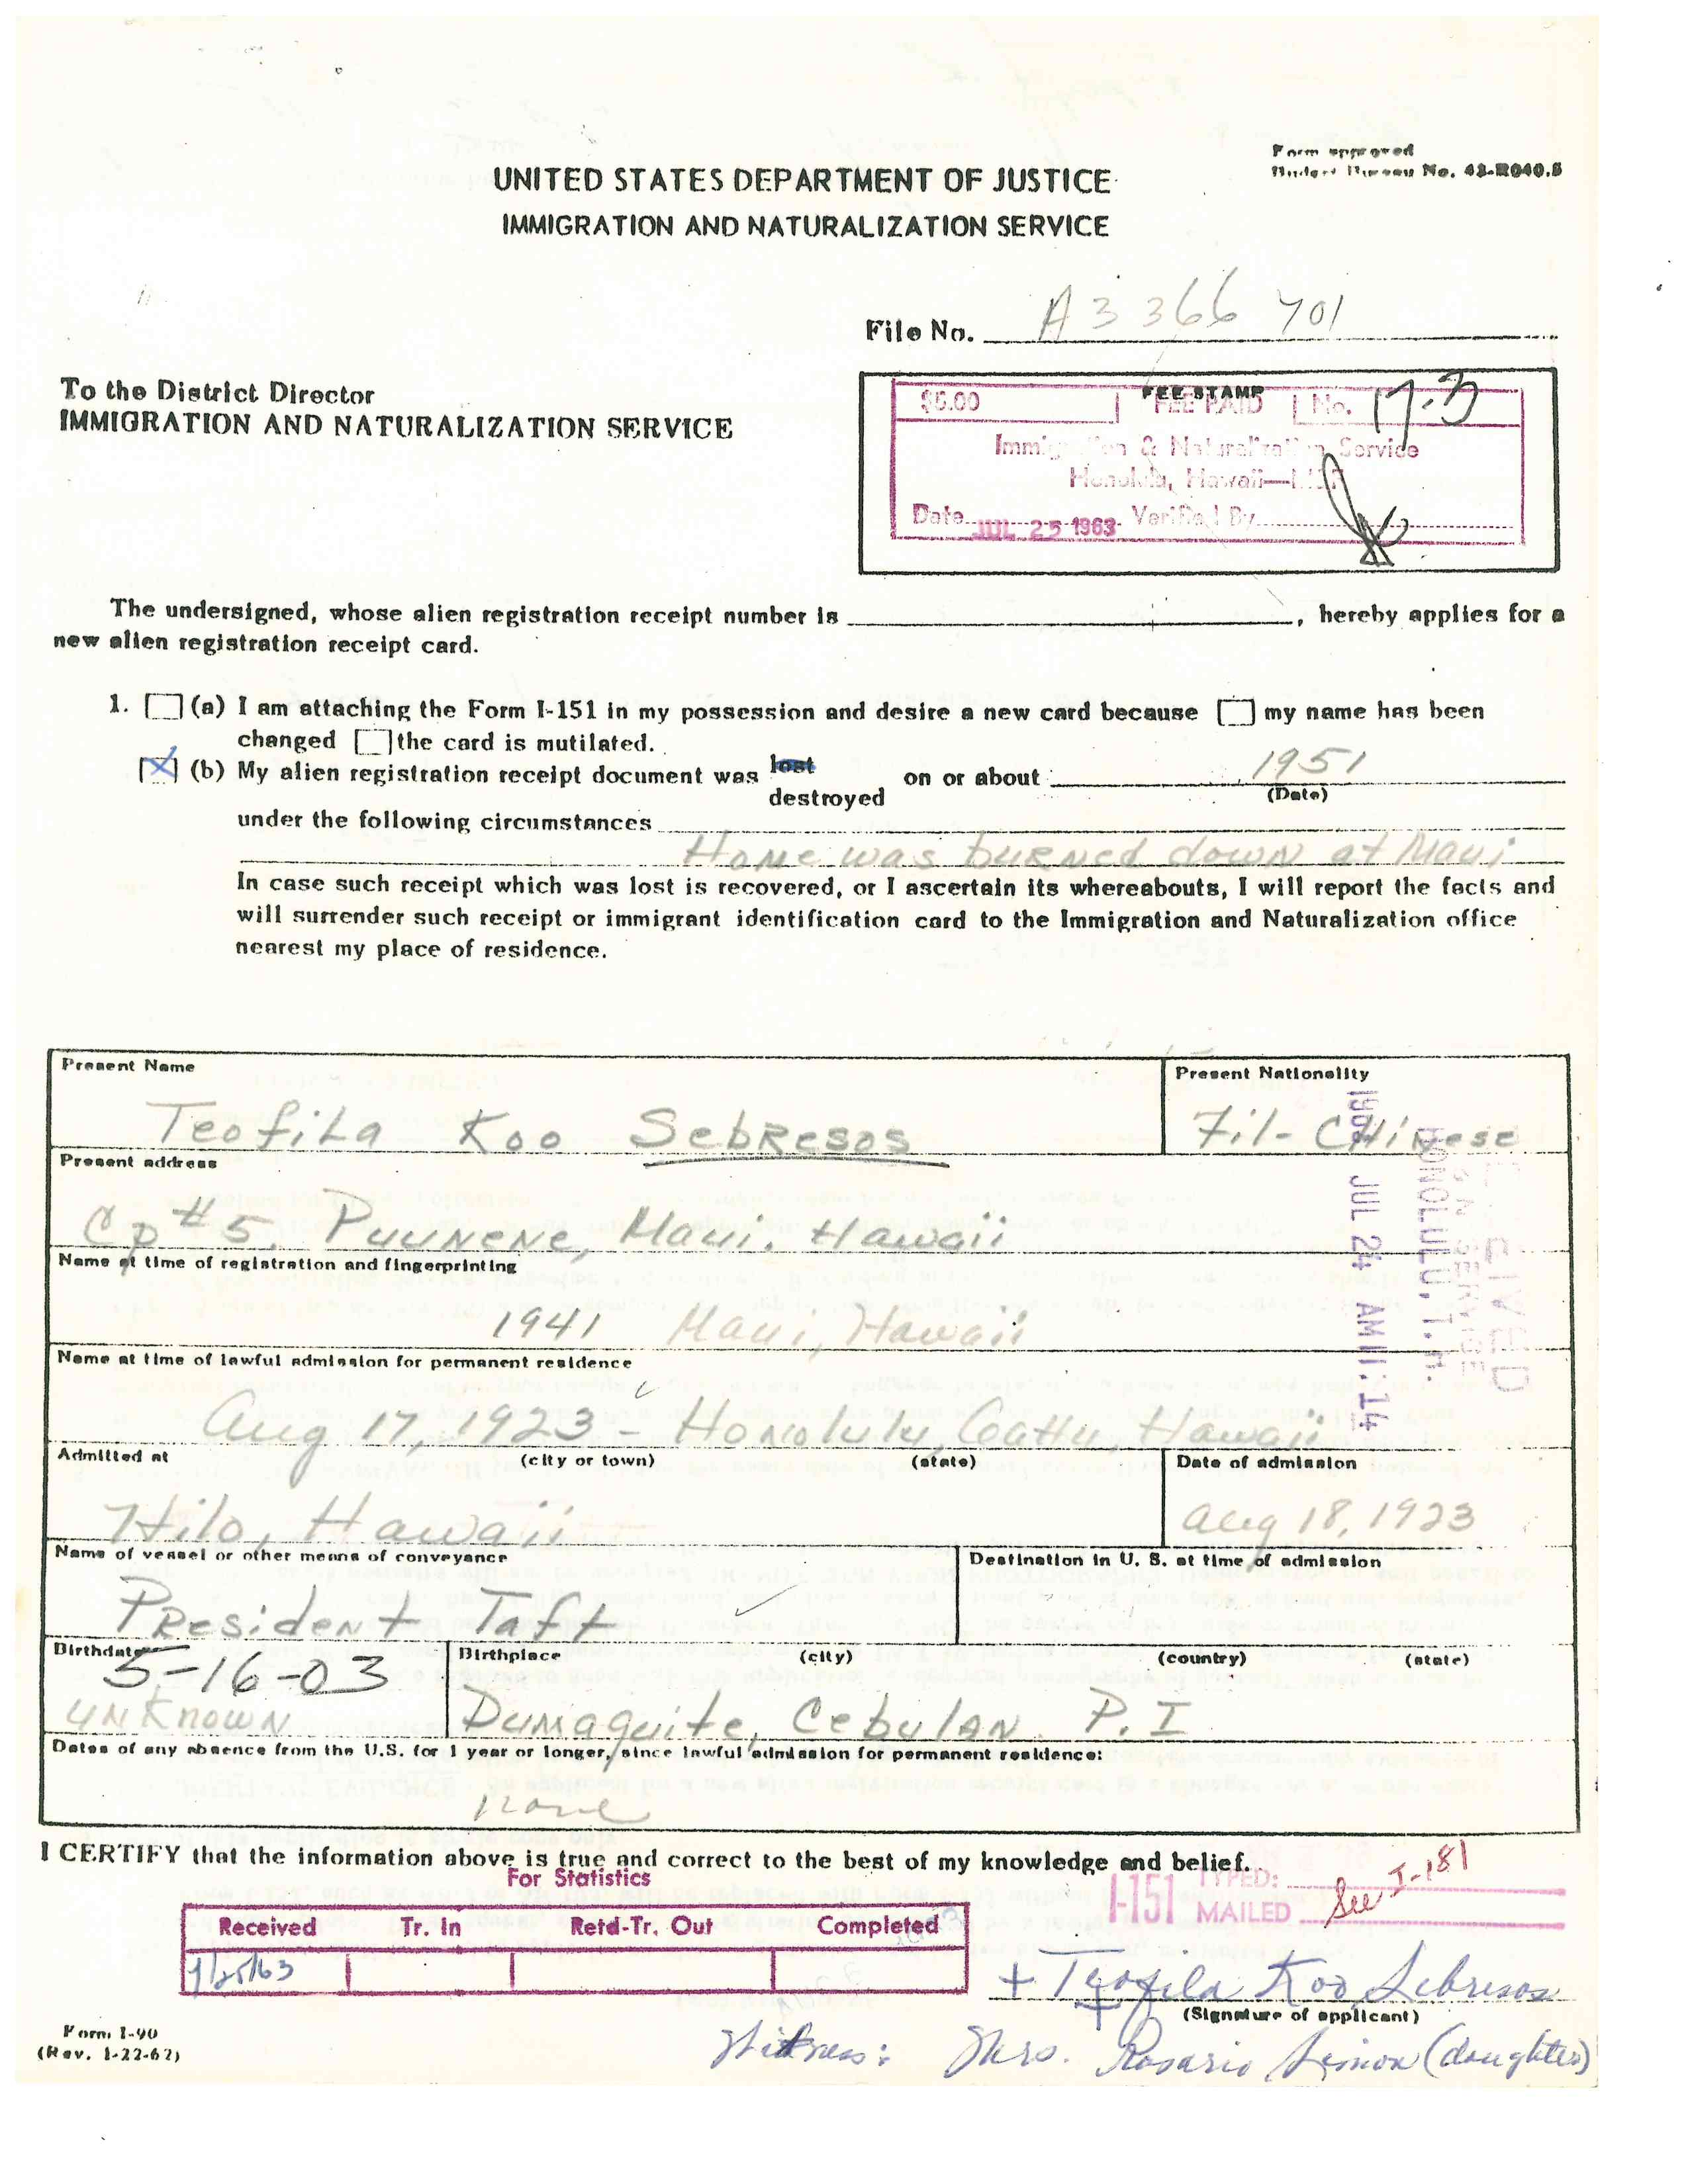 Form approved
Budget Bureau No. 43-R040.5
UNITED STATES DEPARTMENT OF JUSTICE
IMMIGRATION AND NATURALIZATION SERVICE
File No. A3 366 701
To the District Director
IMMIGRATION AND NATURALIZATION SERVICE
FEE STAMP
$5.00 FEE PAID No.
Immigration & Naturalization Service
Honolulu, Hawaii
Date JUL 25 1963 Verified By
The undersigned, whose alien registration receipt number is , hereby applies for a
new alien registration receipt card.
1. (a) I am attaching the Form I-151 in my possession and desire a new card because my name has been
changed the card is mutilated.
X (b) My alien registration receipt document was lost destroyed on or about 1951
(Date)
under the following circumstances
Home was burned down at Maui
In case such receipt which was lost is recovered, or I ascertain its whereabouts, I will report the facts and
will surrender such receipt or immigrant identification card to the Immigration and Naturalization office
nearest my place of residence.
Present Name
Present Nationality
Teofila Koo Sebresos
Fil-Chinese
Present address
Cp #5. Puunene, Maui. Hawaii
Name at time of registration and fingerprinting
1941 Maui, Hawaii
RECEIVED
HONOLULU, T.H.
JUL 24 AM 11:14
Name at time of lawful admission for permanent residence
Aug 17, 1923 - Honolulu, Oahu, Hawaii
Admitted at (city or town) (state)
Date of admission
Hilo, Hawaii
Aug 18, 1923
Name of vessel or other means of conveyance
Destination in U. S. at time of admission
President Taft
Birthdate
Birthplace (city) (country) (state)
5-16-03
unknown
Dumaguite, Cebulan P.I
Dates of any absence from the U.S. for 1 year or longer, since lawful admission for permanent residence:
none
I CERTIFY that the information above is true and correct to the best of my knowledge and belief.
For Statistics
Received Tr. In Retd-Tr. Out Completed
I-151 TYPED:
MAILED
See I-181
+ Teofila Koo Sebresos
(Signature of applicant)
Form I-90
(Rev. 1-22-62)
Witness: Mrs. Rosario Simon (daughter)